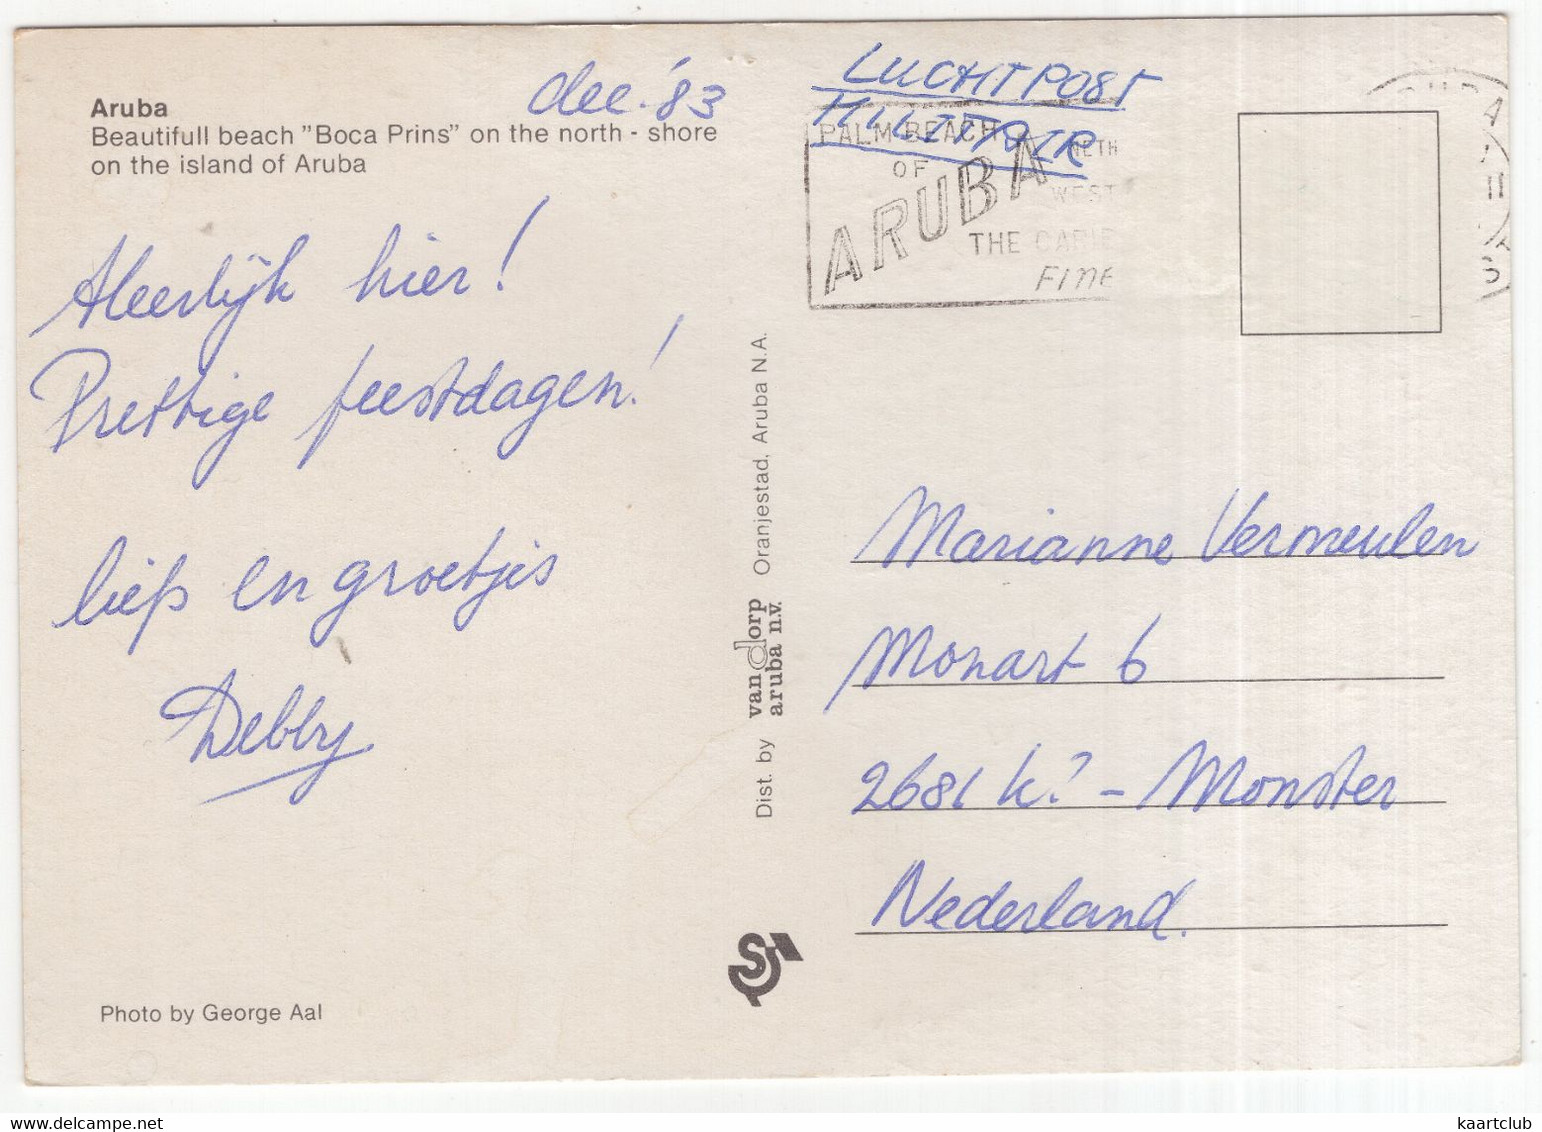 Aruba
Beautifull beach "Boca Prins" on the north - shore
on the island of Aruba
dec. '83
Heerlijk hier!
Prettige feestdagen!
liefs en groetjes
Debby
Photo by George Aal
Dist. by van dorp aruba n.v. Oranjestad, Aruba N.A.
LUCHTPOST
PALM BEACH
OF
ARUBA
NETH
WEST
THE CARIB
FINE
Marianne Vermeulen
Monart 6
2681 K? - Monster
Nederland.
kaartclub